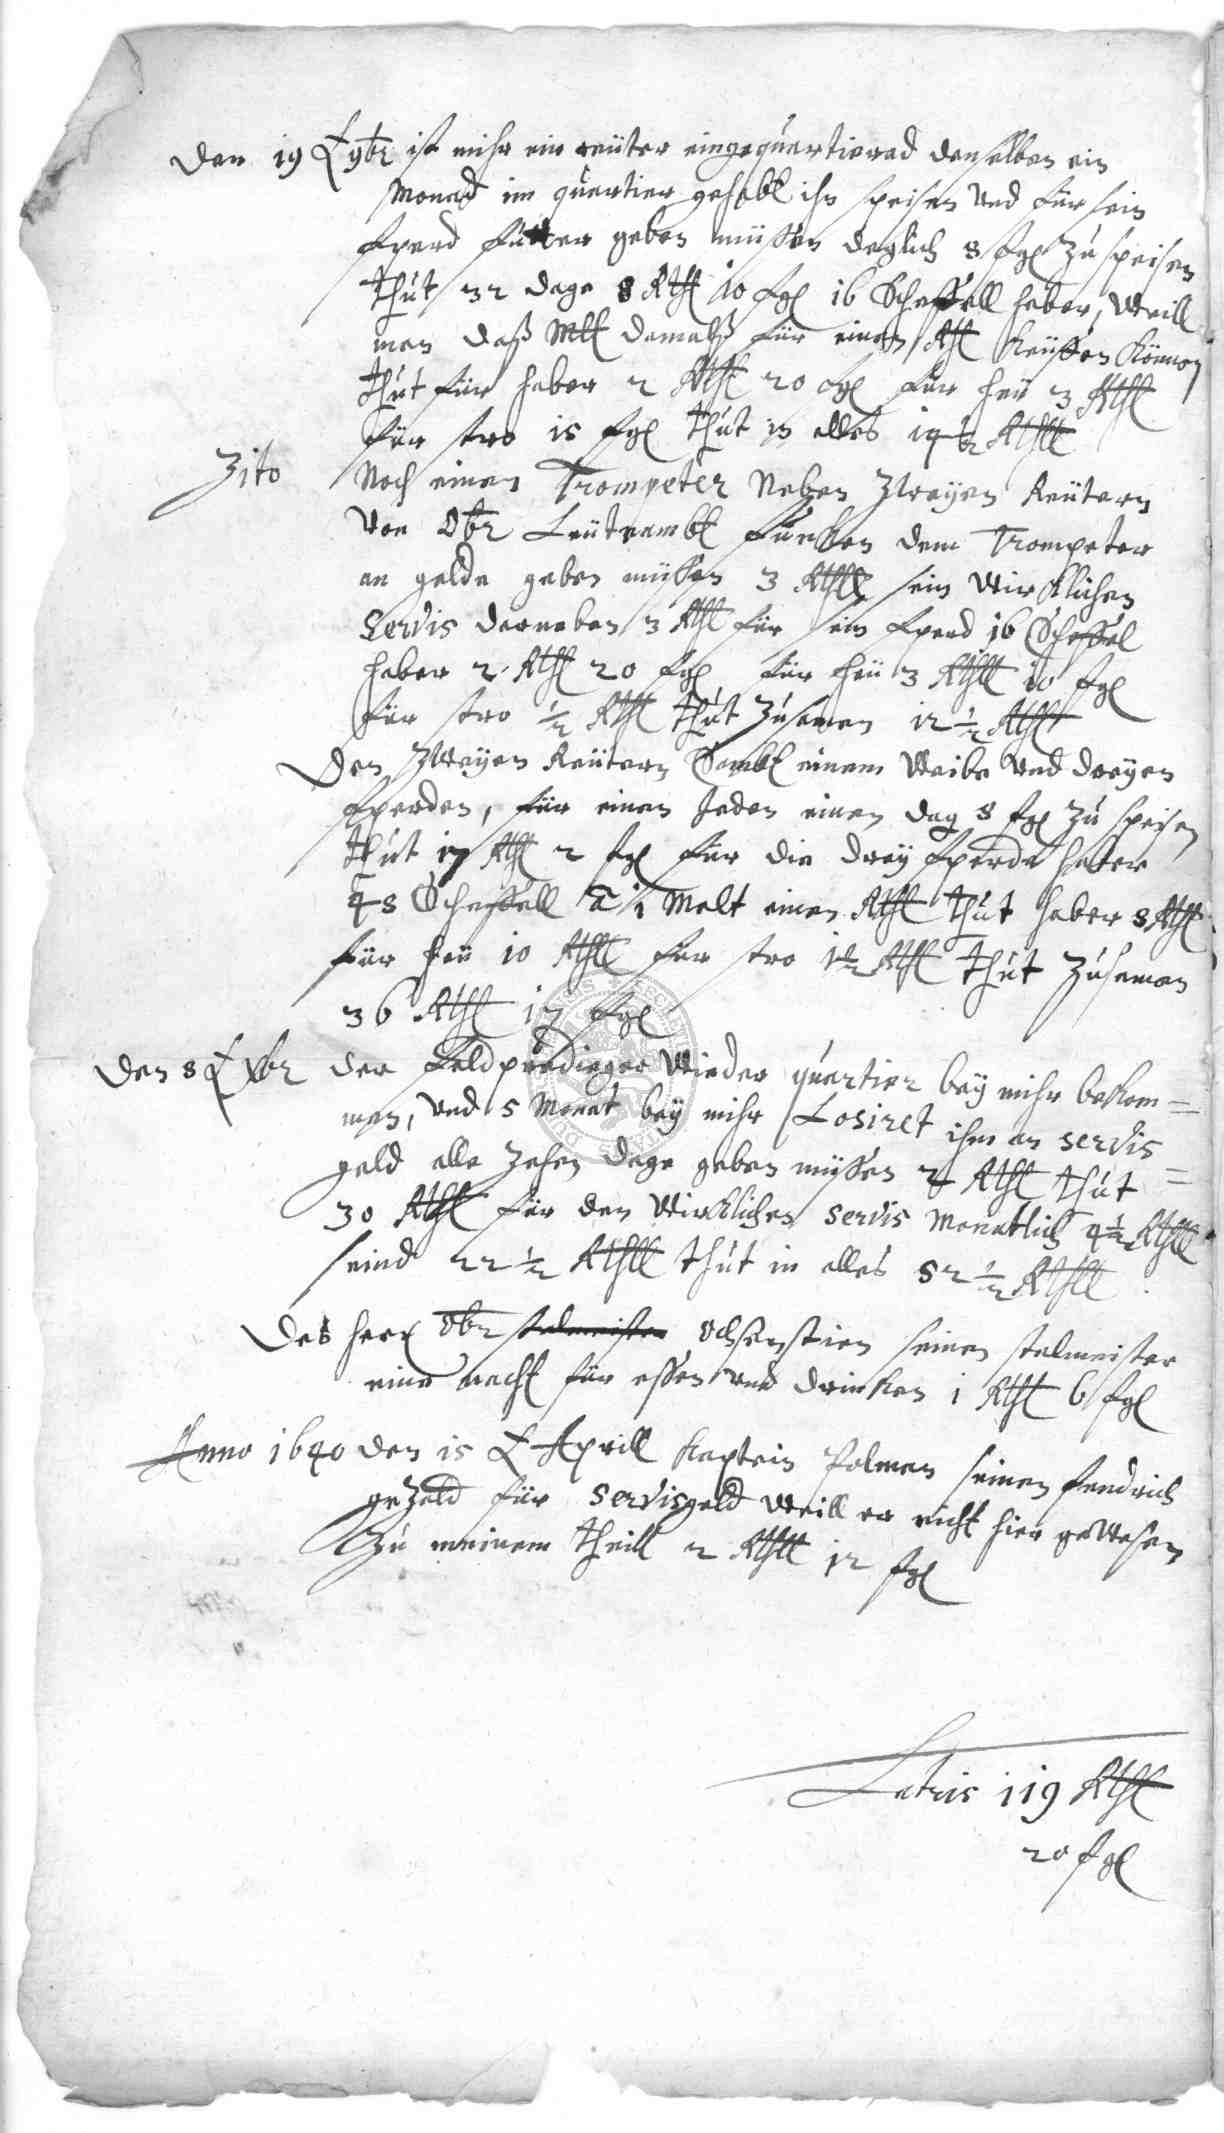 Den 19 9br ist mihr ein reüter eingequartiered denselben ein
Monad im quartier gehabt ihn speisen und für sein
Pferd fuitter geben müssen deglich 8 sgl zu speisen
thut 32 dage 8 Rthl 10 sgl 16 Scheffell haber, weill
man daß Malt damalß für einen Rthl keuffen können
thut für haber 2 Rthl 20 sgl für heü 3 Rthl
für stro 15 sgl thut in alles 14½ Rthll
Zito Noch einen Trompeter Neben Zweyen Reütern
von Obr Leütnambt Funcken dem Trompeter
an gelde geben müssen 3 Rthll sein wircklichen
Servis darneben 3 Rthl für sein Pferd 16 Scheffel
haber 2 Rthl 20 sgl für heü 3 Rthll 10 sgl
für stro ½ Rthl thut zusamen 12½ Rthll
Den Zweyen Reütern Sambt einem Weibe und dreyen
Pferden, für einen Jeden einen dag 8 sgl zu speisen
thut 17 Rthl 2 sgl für die drey Pferde haber
48 Scheffell à 1 Malt einen Rthl thut haber 8 Rthl
für heü 10 Rthll für stro 1½ Rthl thut zusamen
36 Rthl 17 sgl
Den 8 Xbr der Feldprediger wieder quartier bey mihr bekom=
men, und 5 Monat bey mihr Losiret ihm an servis=
geld alle zehen dage geben müssen 2 Rthl thut
30 Rthl für den wircklichen servis Monatlich 4½ Rthll
seind 22½ Rthll thut in alles 52½ Rthll
Des herr Obr stalmeister Ochsenstien seinen stalmeister
eine nacht für essen und drincken 1 Rthl 6 sgl
Anno 1640 den 15 Aprill Kaptein Polman seinen fendrich
gezald für servisgeld weill er nicht hier gewesen
Zu meinem theill 2 Rthll 12 sgl
Latris 119 Rthl
20 sgl